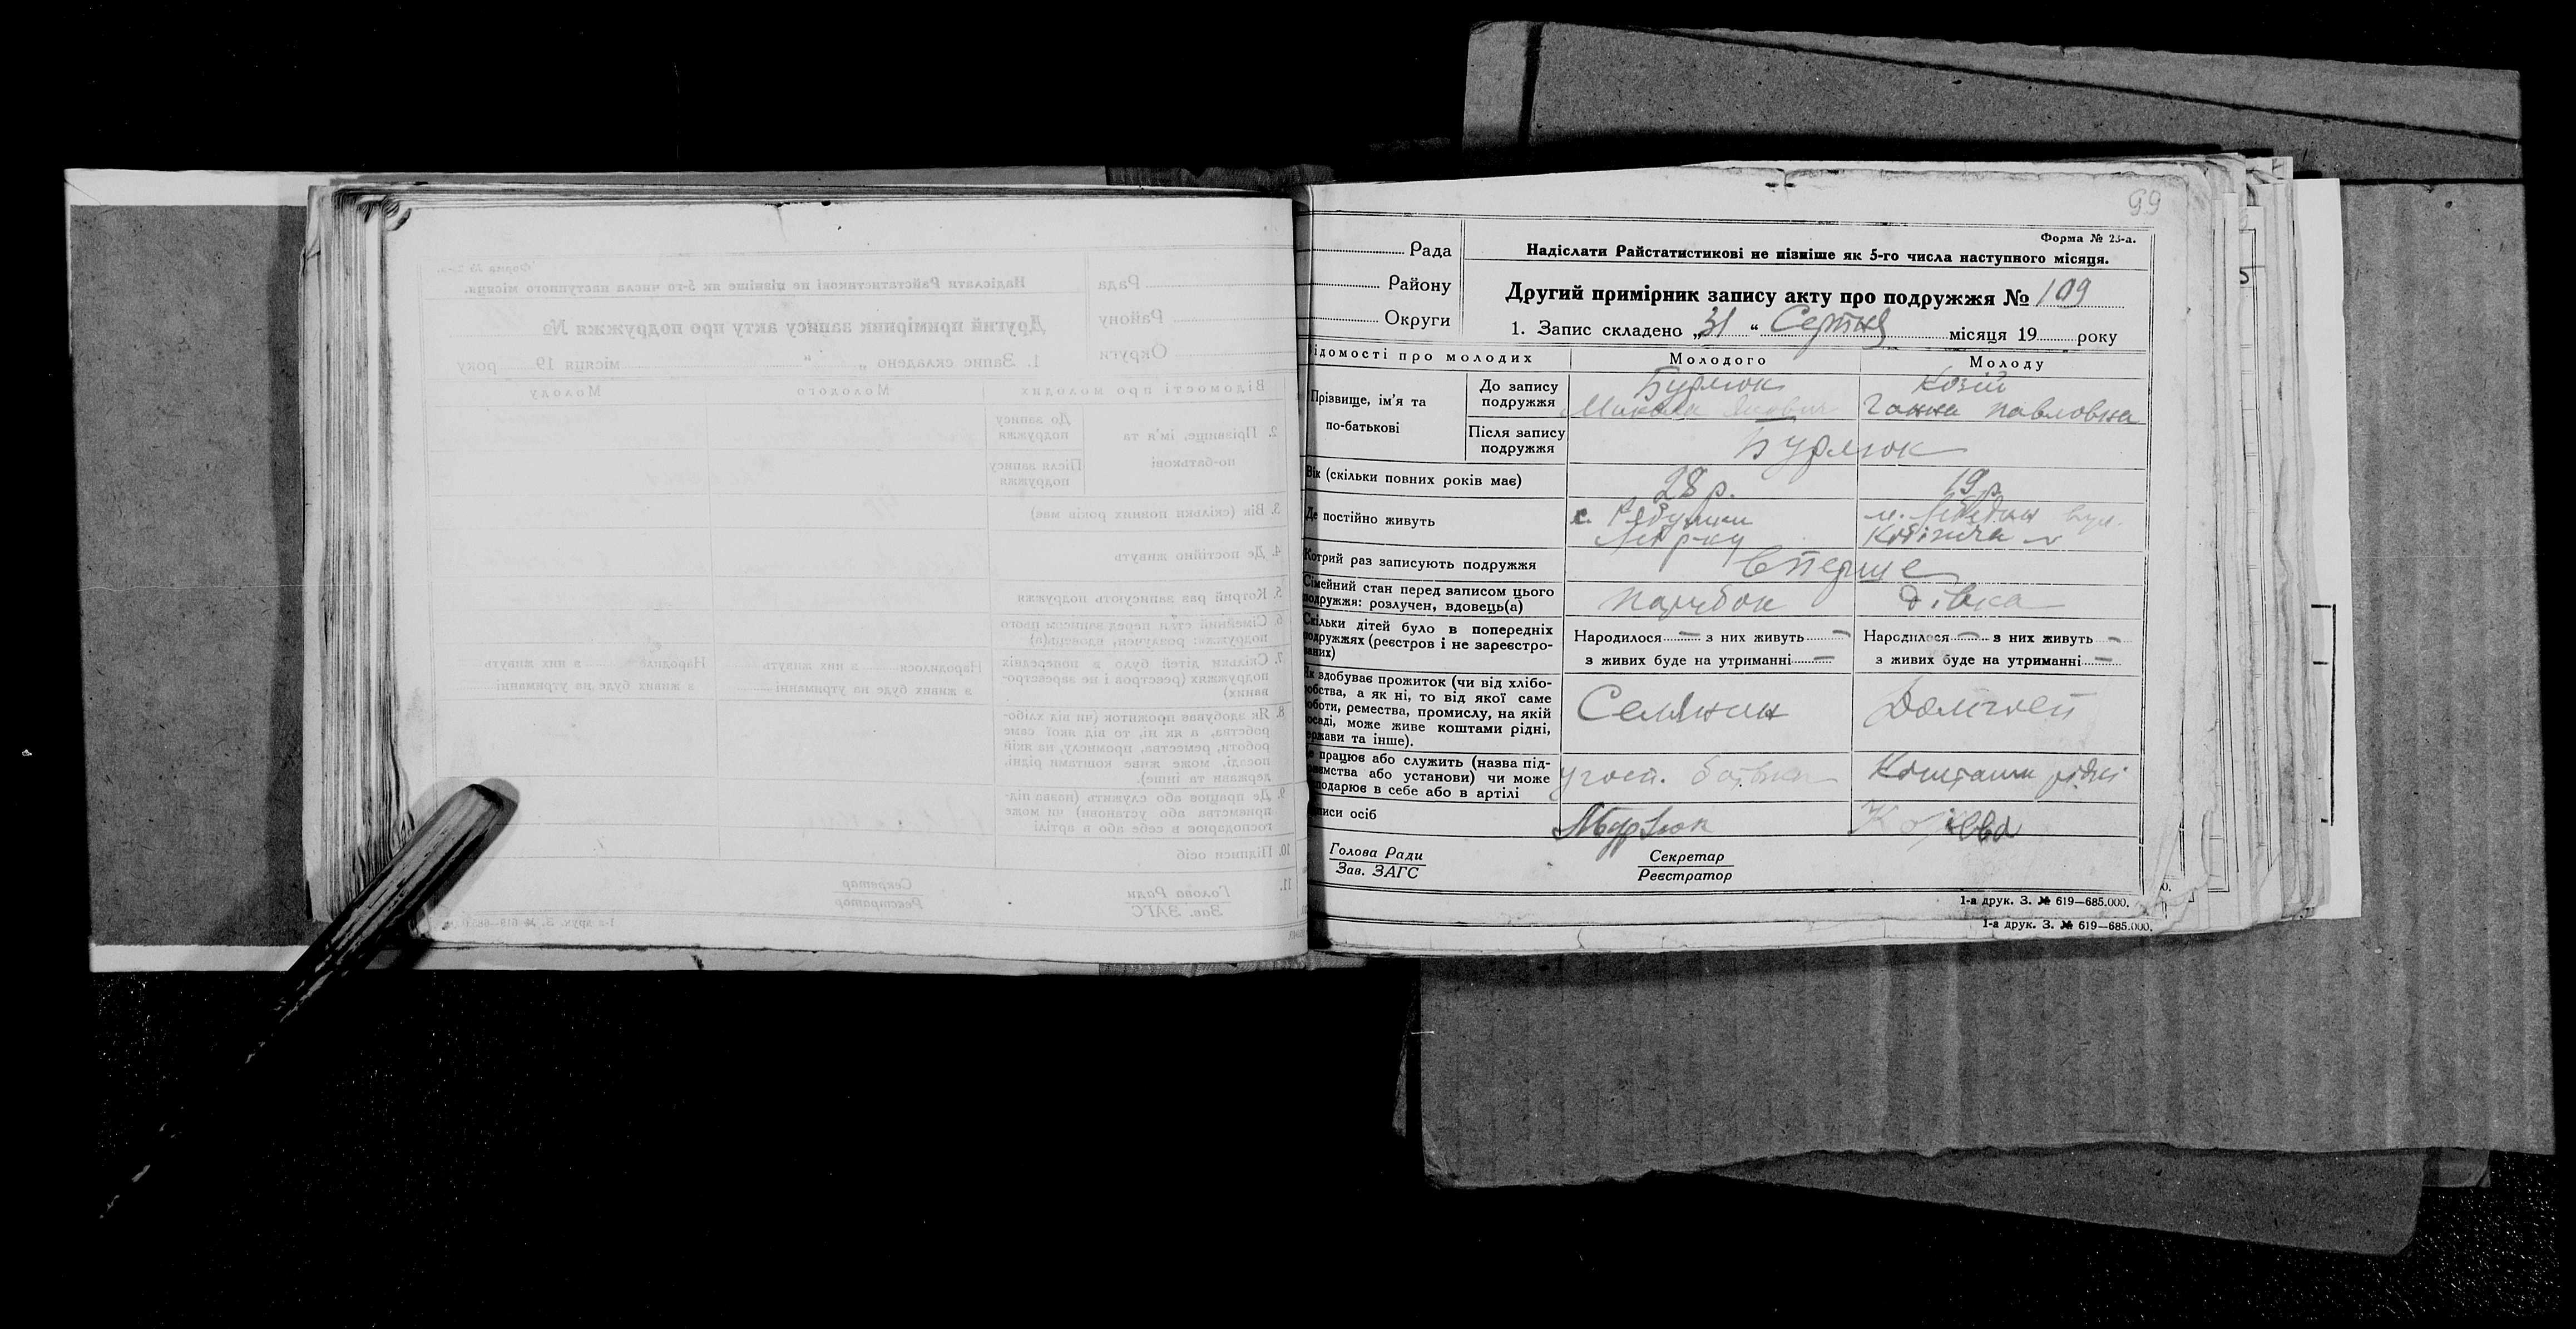 99
Форма № 23-а.
Рада
Району
Округи
Надіслати Райстатистикові не пізніше як 5-го числа наступного місяця.
Другий примірник запису акту про подружжя № 109
1. Запис складено „31“ Серпня місяця 19 року
ідомості про молодих
Молодого
Молоду
Прізвище, ім'я та по-батькові
До запису подружжя
Бурлюк
Микола
Козій
Ганна Павловна
Після запису подружжя
Бурлюк
Вік (скільки повних років має)
28 р.
19 р.
Де постійно живуть
с. Рябушки
р-ну
м. Лебедин вул.
Котрий раз записують подружжя
Вперше
Сімейний стан перед записом цього
подружжя: розлучен, вдовець(а)
парубок
дівка
Скільки дітей було в попередніх
подружжях (реєстров і не зареєстро-
ваних)
Народилося — з них живуть —
з живих буде на утриманні —
Народилося — з них живуть —
з живих буде на утриманні —
Як здобуває прожиток (чи від хлібо-
робства, а як ні, то від якої саме
роботи, ремества, промислу, на якій
посаді, може живе коштами рідні,
держави та інше).
Селянин
Де працює або служить (назва під-
приємства або установи) чи може
господарює в себе або в артілі
у госп. батька
Коштами рідні
Підписи осіб
Голова Ради
Зав. ЗАГС
Секретар
Реєстратор
1-а друк. З. № 619—685.000.
1-а друк. З. № 619—685.000.